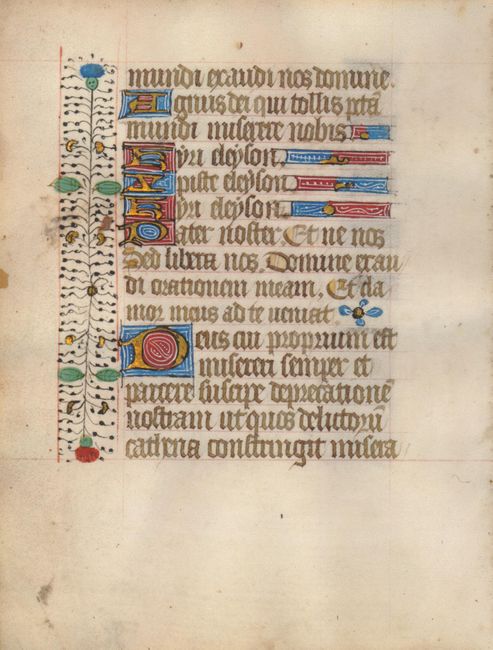 mundi exaudi nos domine.
Agnus dei qui tollis pctā
mundi miserere nobis
Kyri eleyson
Xpiste eleyson
Kyri eleyson
Pater noster. Et ne nos
Sed libera nos. Domine exau
di orationem meam. Et cla
mor meus ad te veniat.
Deus cui proprium est
misereri semper et
parcere suscipe deprecationē
nostram ut quos delictorū
cathena constringit misera